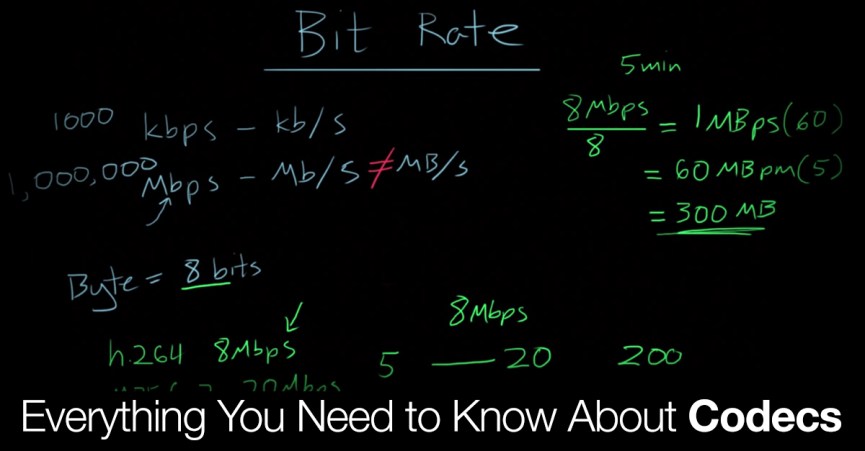 Bit Rate
1000 kbps - kb/s
1,000,000 Mbps - Mb/s ≠ MB/s
Byte = 8 bits
5 min
8Mbps
8
= 1MBps(60)
= 60 MBpm(5)
= 300 MB
8Mbps
h.264 8Mbps 5 — 20 200
20Mbps
Everything You Need to Know About Codecs